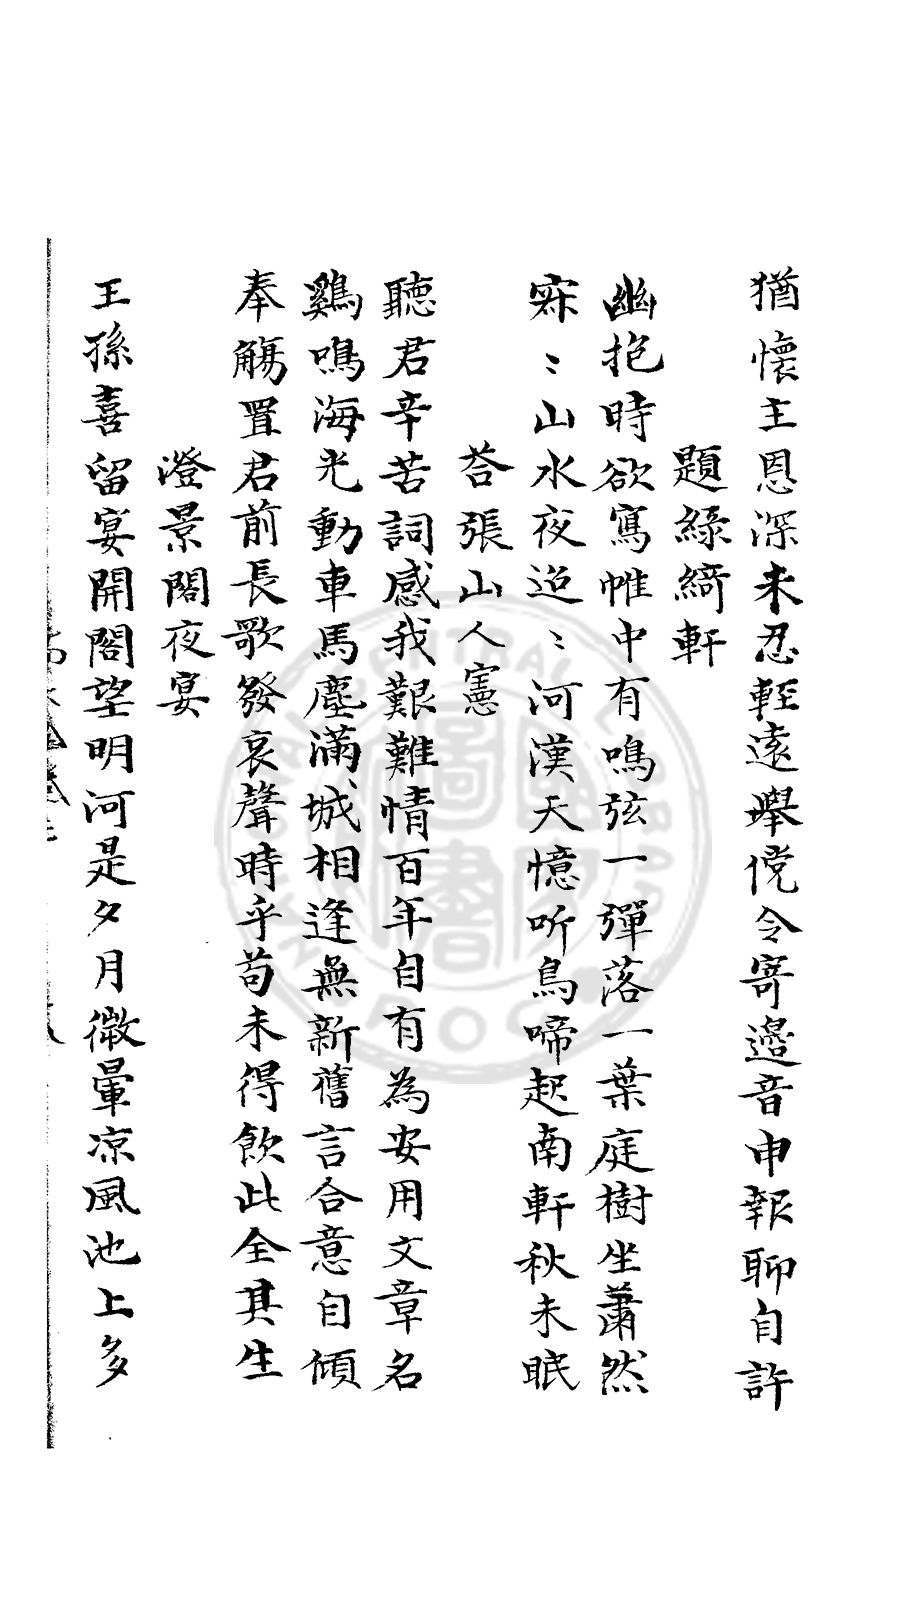 猶懷主恩深未忍輕遠舉儻令寄邊音申報聊自許
題綠綺軒
幽抱時欲寫帷中有鳴弦一彈落一葉庭樹坐蕭然
寂〻山水夜迢〻河漢天憶听烏啼起南軒秋未眠
荅張山人憲
聽君辛苦詞感我艱難情百年自有為安用文章名
鷄鳴海光動車馬塵滿城相逢無新舊言合意自傾
奉觴置君前長歌發哀聲時乎苟未得飲此全其生
澄景閣夜宴
王孫喜留宴開閣望明河是夕月微暈凉風池上多